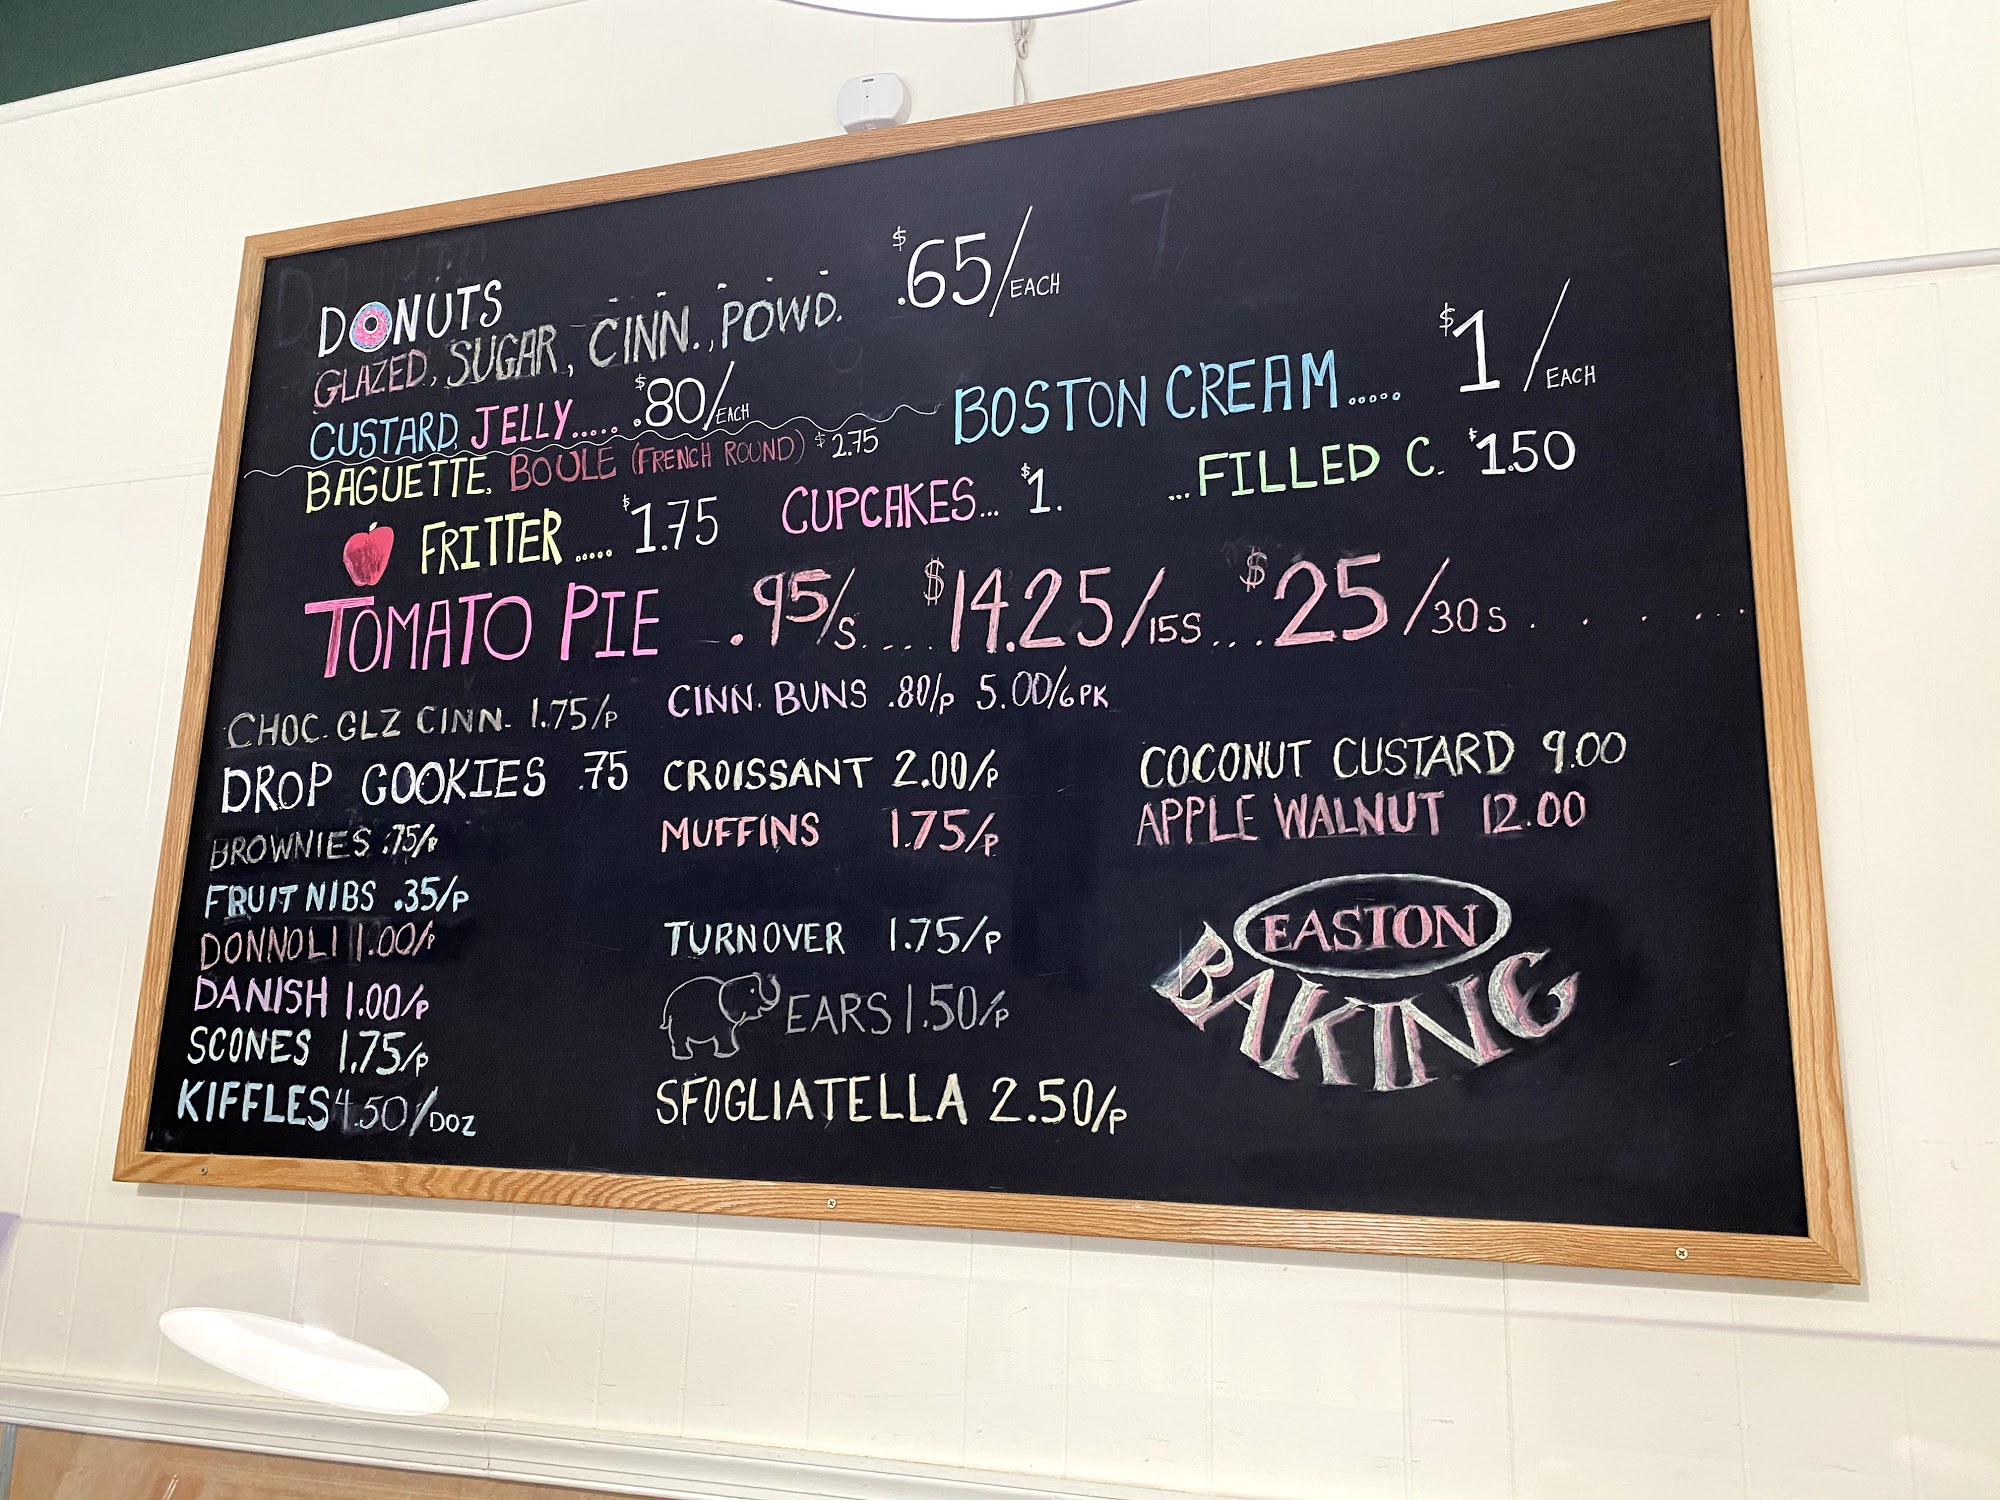 DONUTS $.65/EACH
GLAZED, SUGAR, CINN., POWD.
CUSTARD, JELLY..... $.80/EACH
BOSTON CREAM..... $1/EACH
BAGUETTE, BOULE (FRENCH ROUND) $2.75
FRITTER..... $1.75 CUPCAKES... $1. ...FILLED C. $1.50
TOMATO PIE .95/S.... $14.25/15S... $25/30S . . . . . .
CHOC. GLZ CINN. 1.75/P
CINN. BUNS .80/P 5.00/6PK
DROP COOKIES .75
BROWNIES .75/P
FRUIT NIBS .35/P
DONNOLI 1.00/P
DANISH 1.00/P
SCONES 1.75/P
KIFFLES 4.50/DOZ
CROISSANT 2.00/P
MUFFINS 1.75/P
TURNOVER 1.75/P
EARS 1.50/P
SFOGLIATELLA 2.50/P
COCONUT CUSTARD 9.00
APPLE WALNUT 12.00
EASTON
BAKING